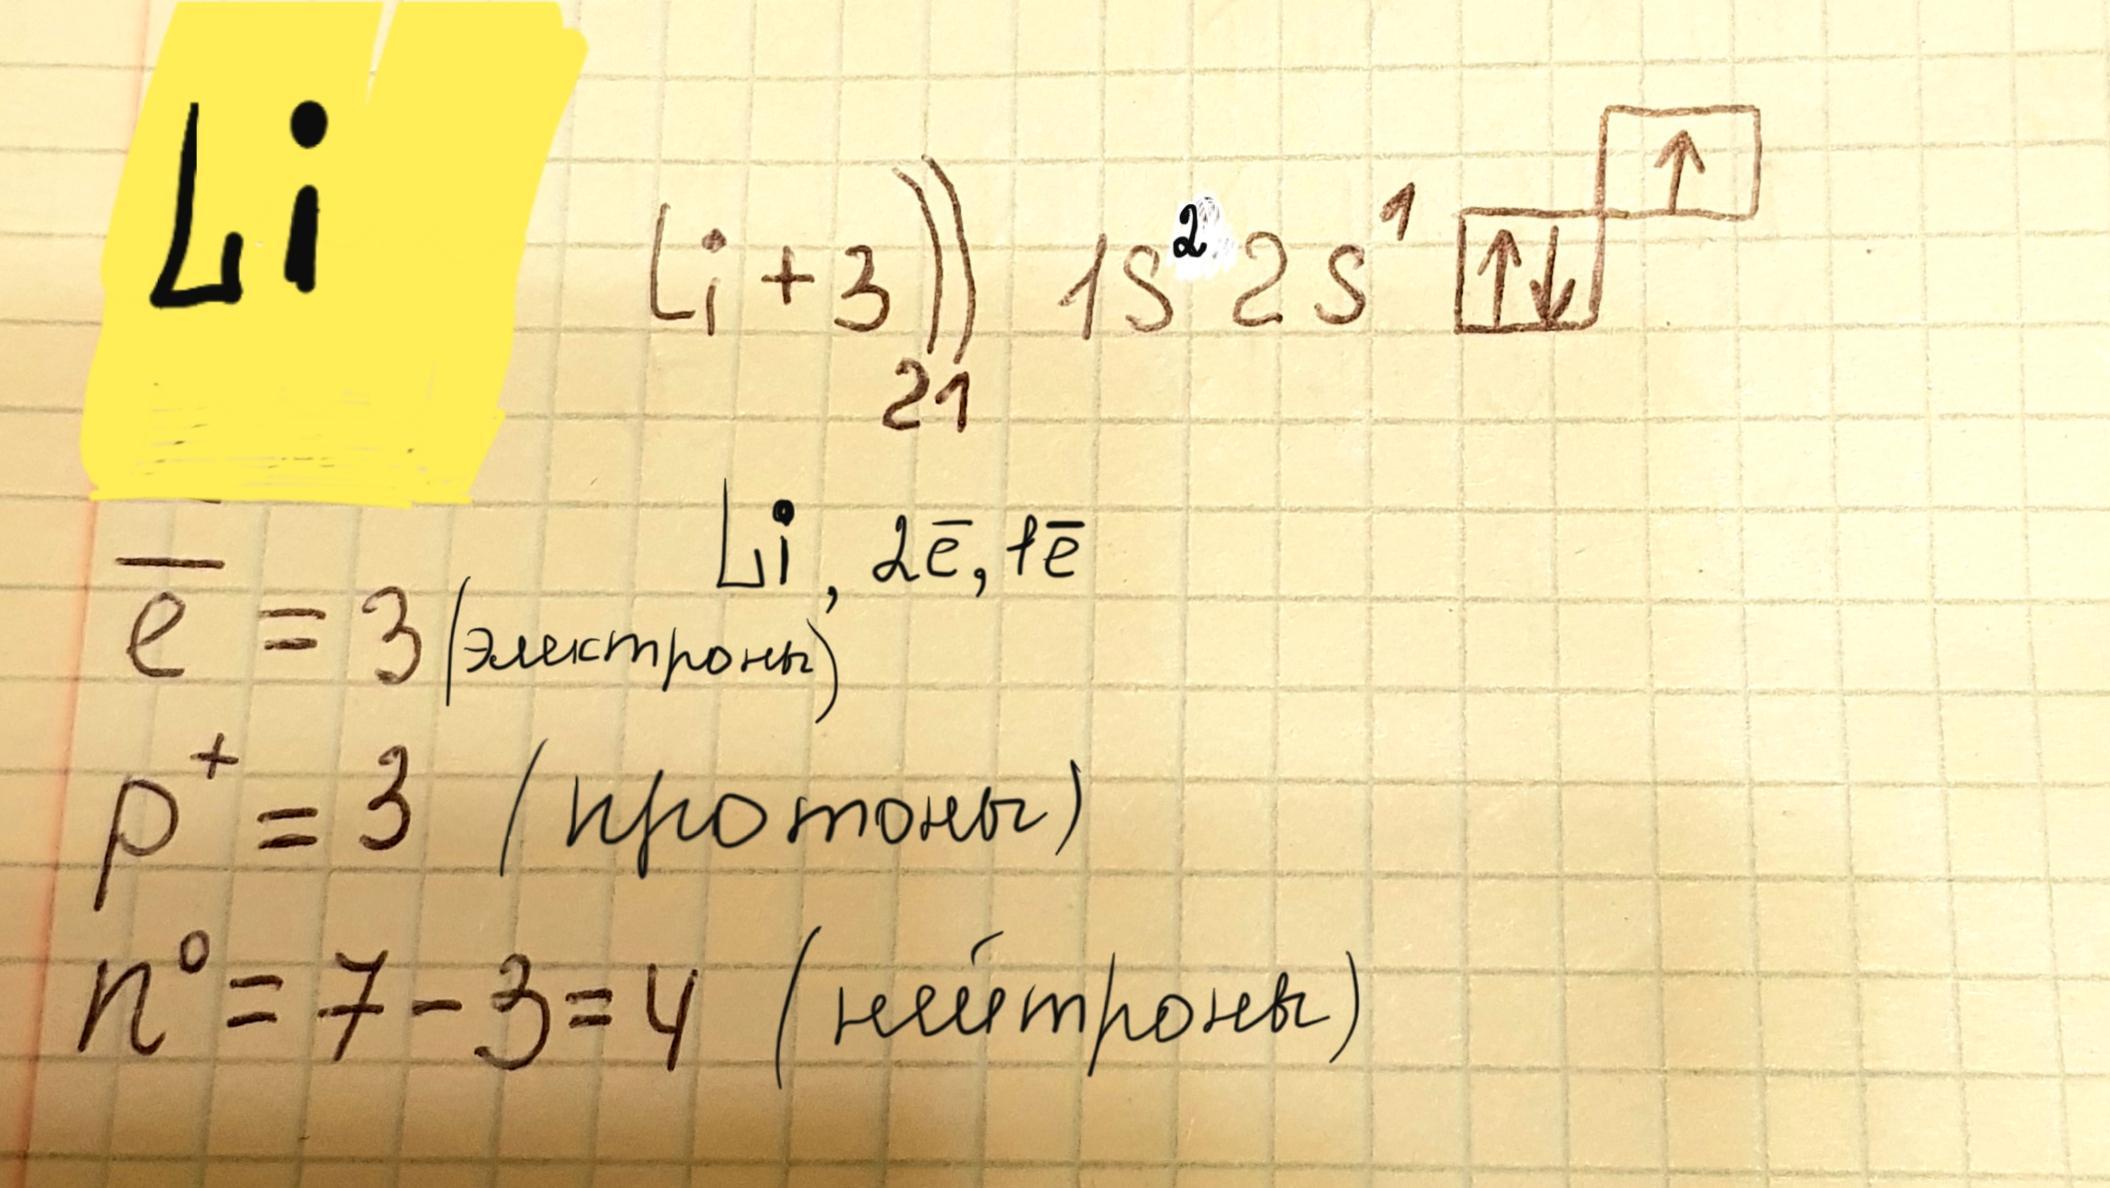 Li
Li +3 )) 1s² 2s¹ ↑↓ ↑
21
Li, 2e̅, 1e̅
e̅ = 3 (электроны)
p⁺ = 3 (протоны)
n⁰ = 7 - 3 = 4 (нейтроны)